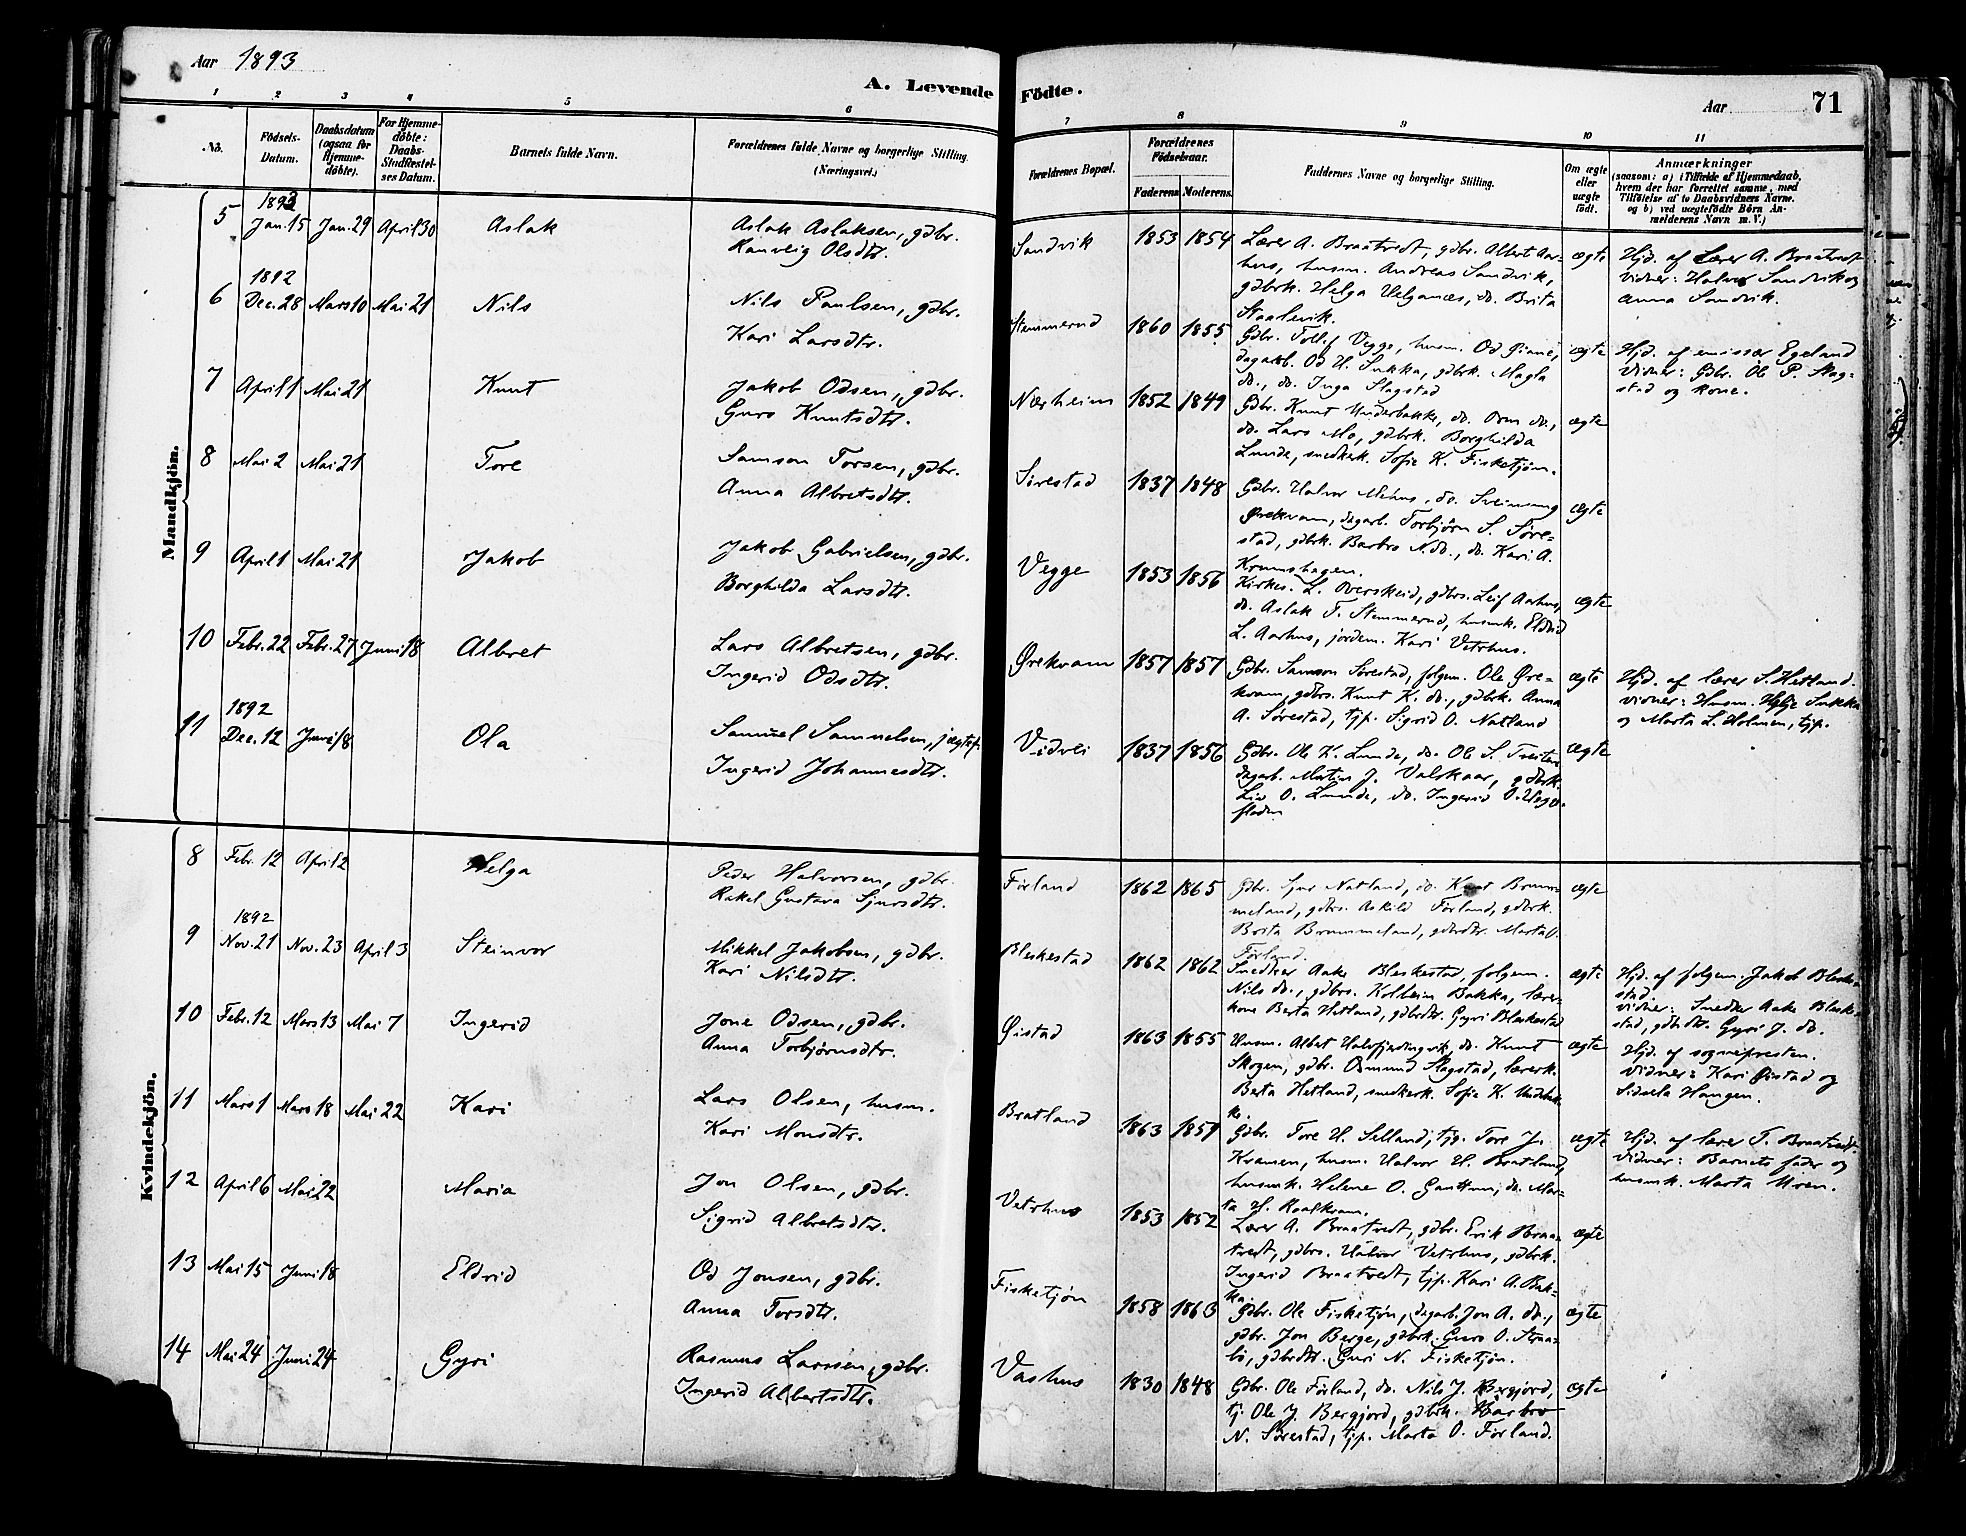 Aar 1893
A. Levende Födte.
Aar 71
1 2 3 4 5 6 7 8 9 10 11
No. Födsels-Datum. Daabsdatum (ogsaa for Hjemme-döbte). For Hjemme-döbte: Daabs-Stadfæstel-ses Datum. Barnets fulde Navn. Forældrenes fulde Navne og borgerlige Stilling (Næringsvei.) Forældrenes Bopæl. Forældrenes Födselsaar. Faderens Moderens Faddernes Navne og borgerlige Stilling. Om ægte eller uægte födt. Anmærkninger (saasom: a) i Tilfælde af Hjemmedaab, hvem der har forrettet samme, med Tilföielse af to Daabsvidners Navne. og b) ved uægtefödte Börn An-melderens Navn m. V.)
Mandkjön.
5 1893 Jan. 15 Jan. 29 April 30 Aslak
Aslak Aslaksen, gdbr.
Ranveig Olsdtr.
Sandvik 1853 1854
Lærer A. Braatvedt, gdbr. Albert Aar-
hus, husm. Andreas Sandvik,
gdbrk. Helga Helganæs, do. Brita
Staalevik.
ægte
Hjd. af Lærer A. Braatvedt
Vidner: Halvor Sandvik og
Anna Sandvik.
6 1892 Dec. 28 Mars 10 Mai 21 Nils
Nils Paulsen, gdbr.
Kari Larsdtr.
Stemmerud 1860 1855
Gdbr. Tollef Vegge, husm. Od
dagarb. Od H. Sukka, gdbrk. Magla
do., do. Inga Slagstad
ægte
Hjd. af emissær Egeland
Vidner: Gdbr. Ole P. Slag-
stad og kone.
7 April 1 Mai 21 Knut
Jakob Odsen, gdbr.
Guro Knutsdtr.
Nærheim 1852 1849
Gdbr. Knut Underbakke, do. Orm do.,
do. Lars Mo, gdbrk. Borghilda
Lunde, snedkerk. Sofie K. Fisketjøn.
ægte
8 Mai 2 Mai 21 Tore
Samson Torsen, gdbr.
Anna Albretsdtr.
Sørestad 1837 1848
Gdbr. Halvor Mehus, do. Sveinung
Ørekvam, dagarb. Torbjørn S. Søre-
stad, gdbrk. Barbro N. do., do. Kari A.
Krunshagen.
ægte
9 April 1 Mai 21 Jakob
Jakob Gabrielsen, gdbr.
Borghilda Larsdtr.
Vegge 1853 1856
Kirkes. L. Overskeid, gdbrs. Leif Aarhus,
do. Aslak T. Stemmerud, husmk. Eldrid
L. Aarhus, jordem. Kari Vetrhus.
ægte
10 Febr. 22 Febr. 27 Juni 18 Albret
Lars Albretsen, gdbr.
Ingerid Odsdtr.
Ørekvam 1857 1857
Gdbr. Samson Sørestad, folgem. Ole Øre-
kvam, gdbrs. Knut K. do., gdbrk. Anna
A. Sørestad, tjp. Sigrid O. Natland
ægte
Hjd. af lærer S. Hetland.
Vidner: Husm. Helje Sukka
og Marta L. Holmen, tjp.
11 1892 Dec. 12 Juni 18 Ola
Samuel Samuelsen, jægtef.
Ingerid Johannesdtr.
Vidvei 1837 1856
Gdbr. Ole K. Lunde, do. Ole S. Tveiten
dagarb. Martin J. Valskaar, gdbrk.
Liv O. Lunde, do. Ingerid O.
ægte
Kvindekjön.
8 Febr. 12 April 2 Helga
Peder Halvorsen, gdbr.
Rakel Gustava Sjursdtr.
Førland 1862 1865
Gdbr. Sjur Natland, do. Knut Brum-
meland, gdbrs. Askild Førland, gdbrk.
Brita Brummeland, gdbrdtr. Marta O.
Førland.
ægte
9 1892 Nov. 21 Nov. 23 April 3 Steinvor
Mikkel Jakobsen, gdbr.
Kari Nilsdtr.
Bleskestad 1862 1862
Snedker Aake Bleskestad, folgem.
Nils do., gdbrs. Kolbein Bakka, lærer-
kone Berta Hetland, gdbrdtr. Gyri Bleskestad
ægte
Hjd. af folgem. Jakob Bleske-
stad.
Vidner: Snedker Aake Bleske-
stad, gdbrdtr. Gyri J. do.
10 Febr. 12 Mars 13 Mai 7 Ingerid
Jone Odsen, gdbr.
Anna Torbjørnsdtr.
Øistad 1863 1855
Husm. Albert Halvfjordingvik, do. Knut
Skogen, gdbr. Osmund Slagstad, lærerk.
Berta Hetland, snedkerk. Sofie K. Underbak-
ke.
ægte
Hjd. af sognepresten.
Vidner: Kari Øistad og
Sidsela Haugen.
11 Mars 1 Mars 18 Mai 22 Kari
Lars Olsen, husm.
Kari Monsdtr.
Bratland 1863 1859
Gdbr. Tore H. Selland, tjg. Tore J.
Kvamen, husm. Halvor H. Bratland,
husmk. Helene O. Ganthun, do. Mar-
ta H. Roalkvam.
ægte
Hjd. af lærer T. Braatvedt.
Vidner: Barnets fader og
husmk. Marta Moen.
12 April 6 Mai 22 Maria
Jon Olsen, gdbr.
Sigrid Albretsdtr.
Vetrhus 1853 1852
Lærer A. Braatvedt, gdbr. Erik Braa-
tvedt, gdbrs. Halvor Vetrhus, gdbrk.
Ingerid Braatvedt, tjp. Kari A. Bak-
ka.
ægte
13 Mai 15 Juni 18 Eldrid
Od Jonsen, gdbr.
Anna Torsdtr.
Fisketjøn 1858 1863
Gdbr. Ole Fisketjøn, dagarb. Jon A. do.,
gdbr. Jon Berge, gdbrk. Guro O. Straa-
bø, gdbrdtr. Guri N. Fisketjøn.
ægte
14 Mai 24 Juni 24 Gyri
Rasmus Larssen, gdbr.
Ingerid Albertsdtr.
Vashus 1830 1848
Gdbr. Ole Førland, do. Nils J. Bergjord,
tj. Ole J. Bergjord, gdbrk. Barbro
N. Sørestad, tjp. Marta O. Førland.
ægte